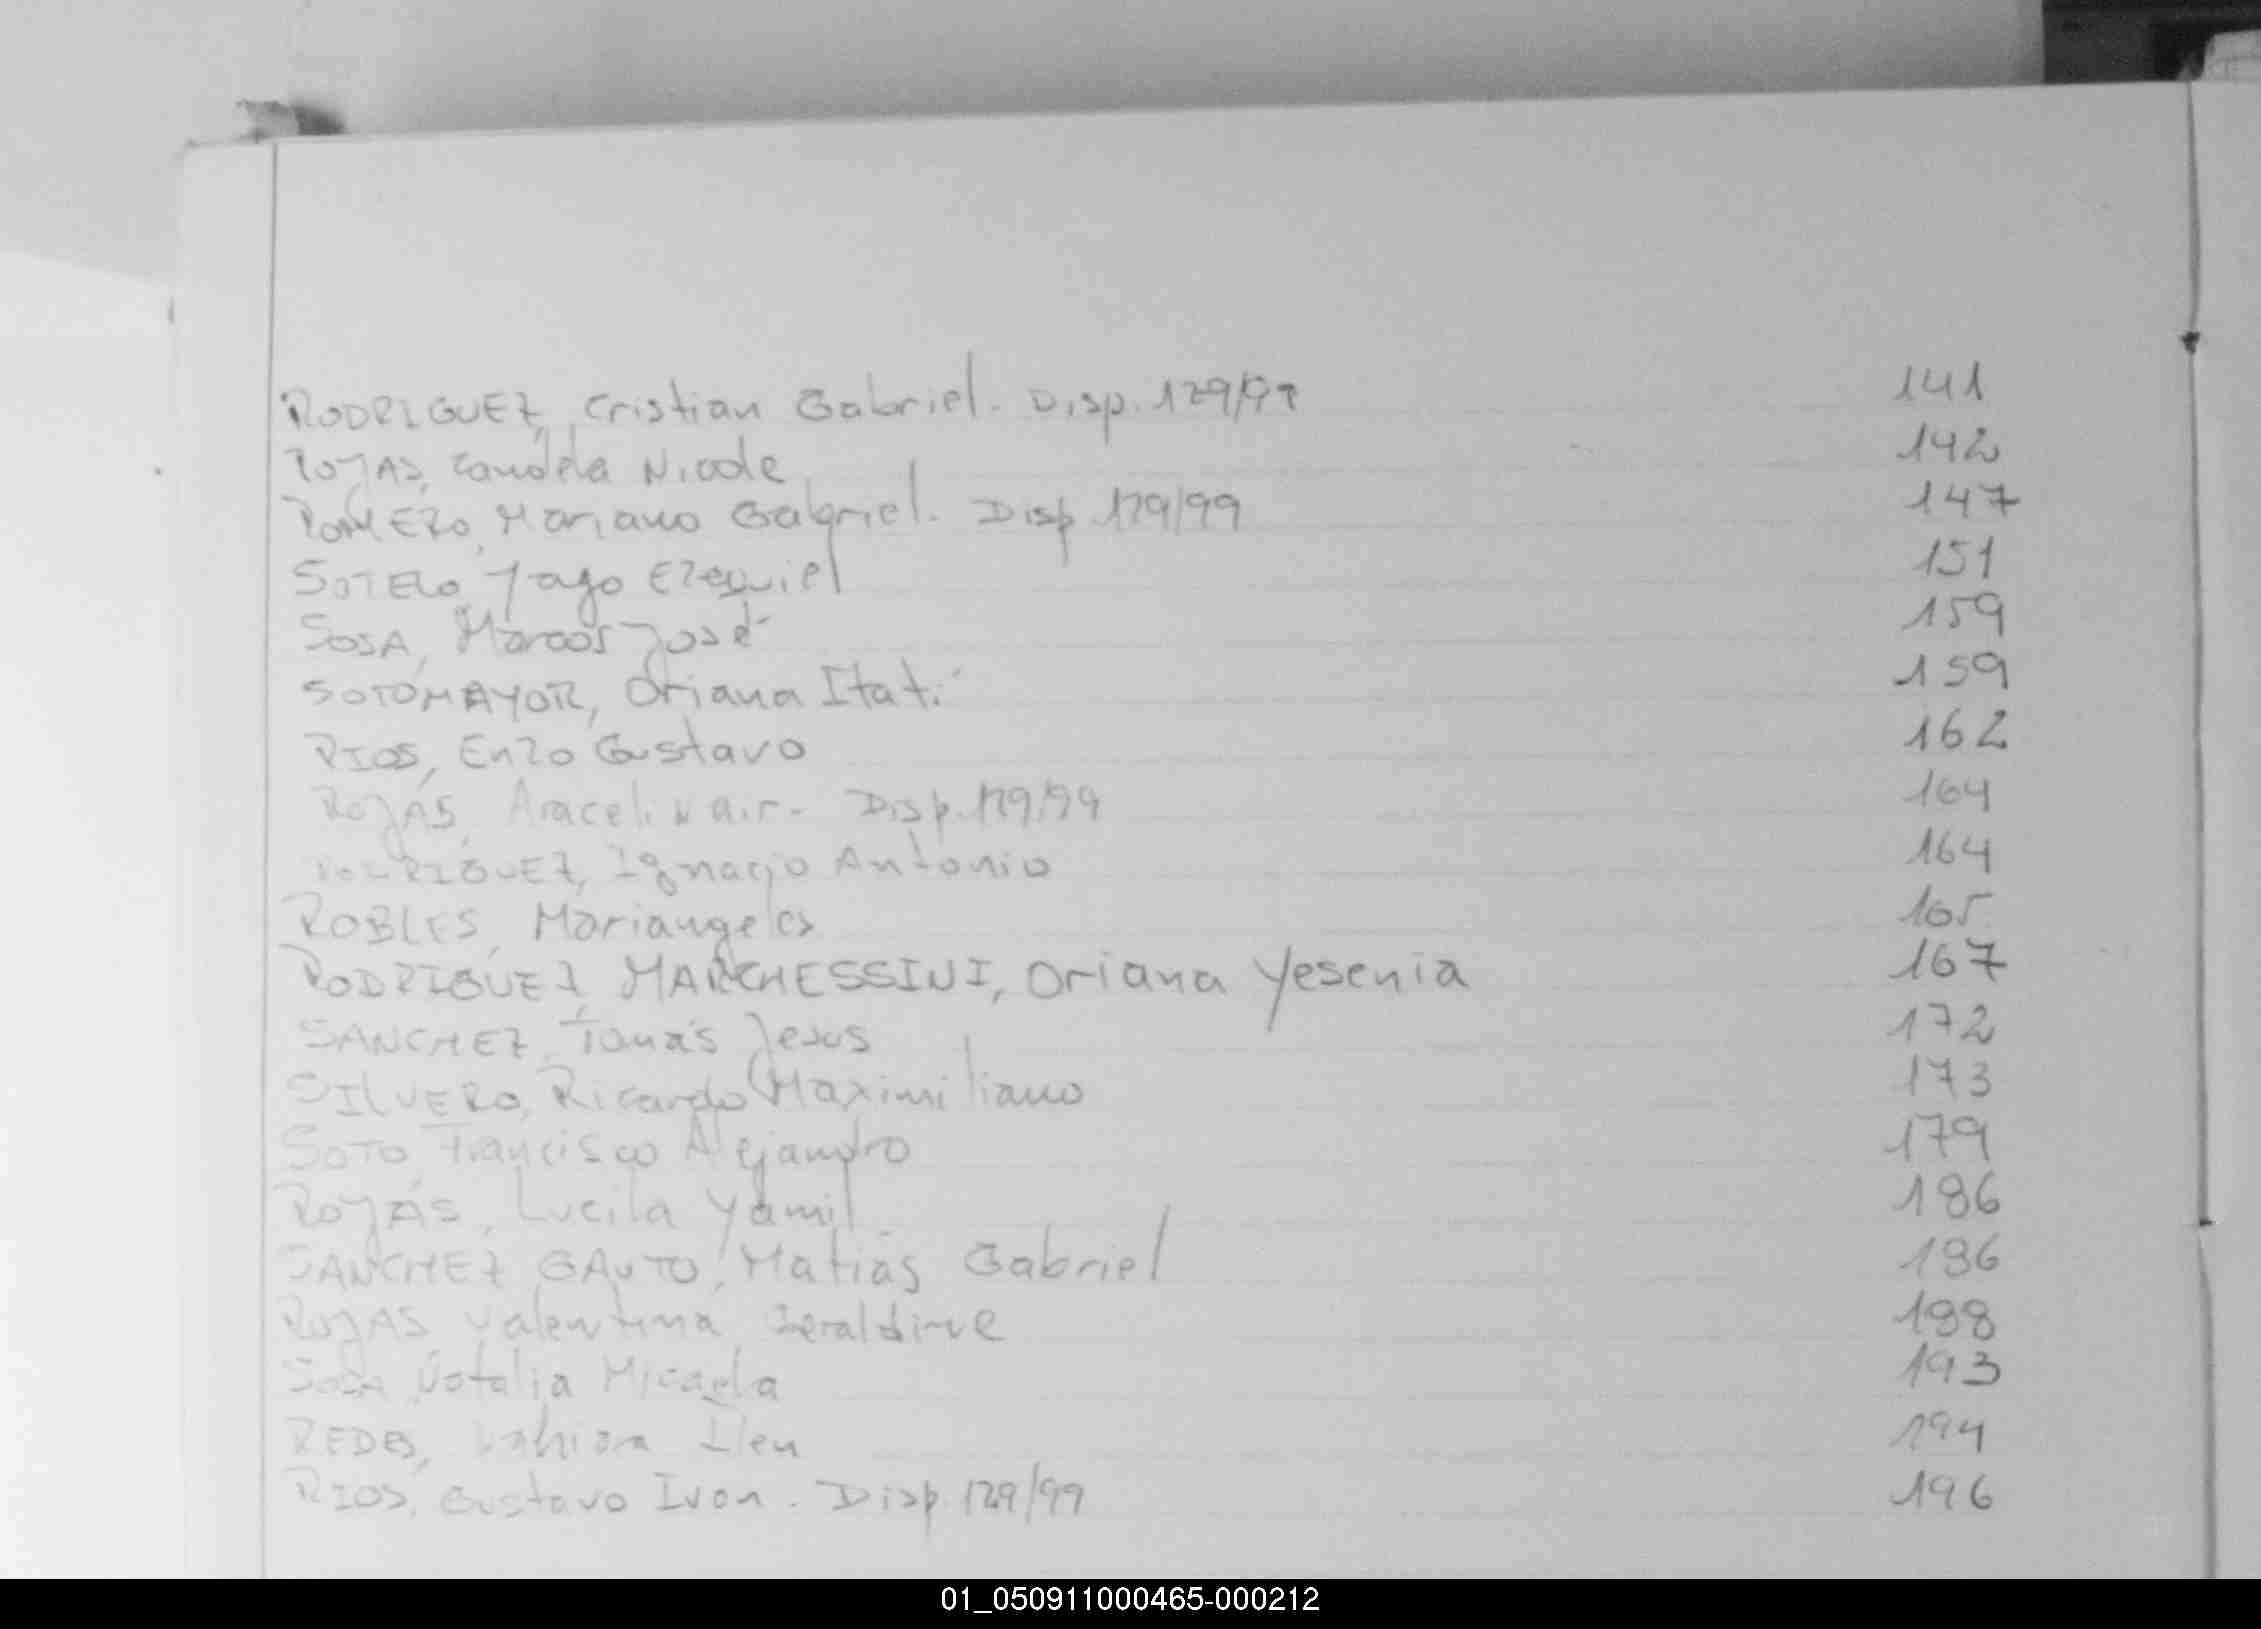 RODRIGUEZ, Cristian Gabriel. Disp. 129/99 141
ROJAS, Candela Nicole 142
ROMERO, Mariano Gabriel. Disp 129/99 147
SOTELO, Yago Ezequiel 151
SOSA, Marcos José 159
SOTOMAYOR, Oriana Itatí 159
RIOS, Enzo Gustavo 162
ROJAS, Araceli Nair- Disp. 129/99 164
RODRIGUEZ, Ignacio Antonio 164
ROBLES, Mariangeles 165
RODRIGUEZ MARCHESSINI, Oriana Yesenia 167
SANCHEZ, Tomás Jesus 172
SILVERO, Ricardo Maximiliano 173
SOTO, Francisco Alejandro 179
ROJAS, Lucila Yamil 186
SANCHEZ GAUTO, Matias Gabriel 186
ROJAS Valentina Geraldine 188
SOSA, Natalia Micaela 193
194
RIOS, Gustavo Ivon. Disp. 129/99 196
01_050911000465-000212